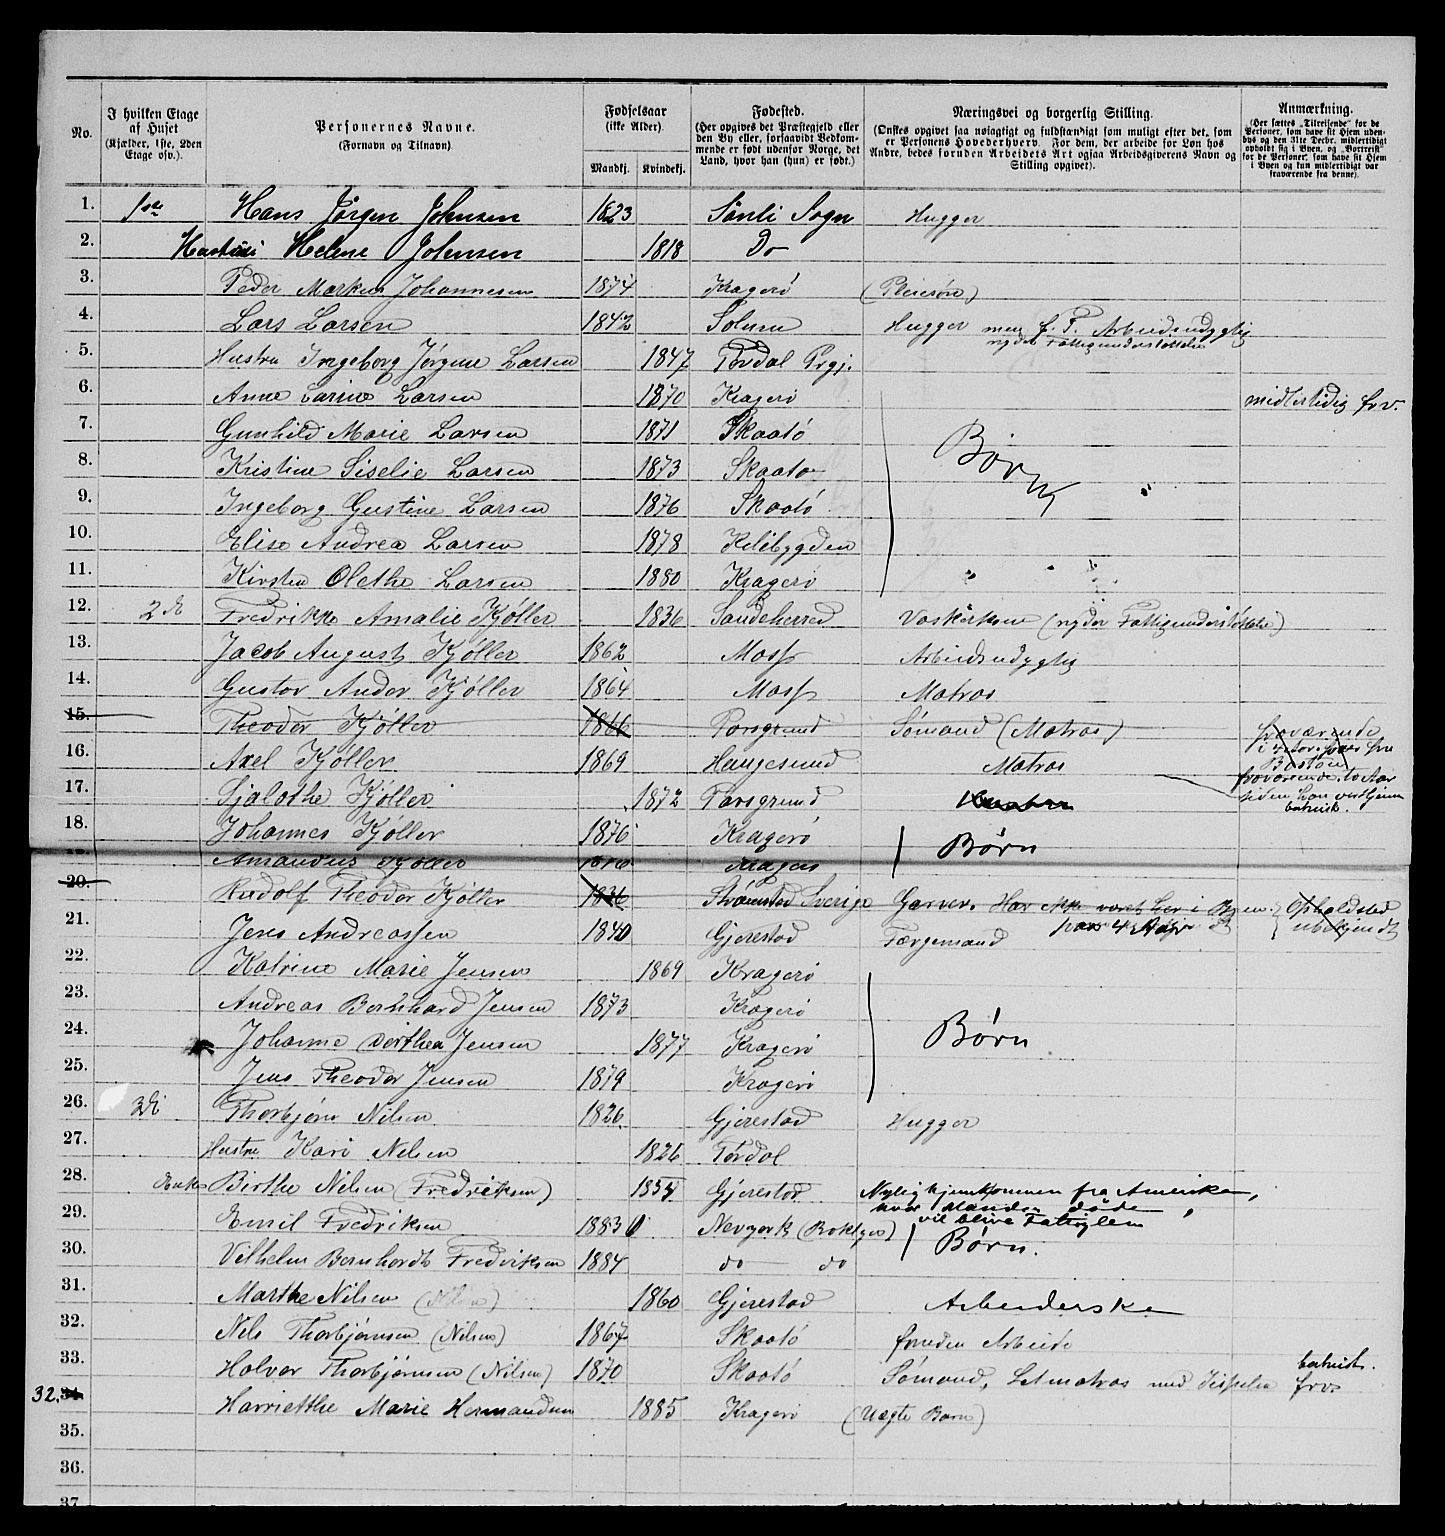 No.
I hvilken Etage af Huset (Kjælder, 1ste, 2den Etage osv.).
Personernes Navne. (Fornavn og Tilnavn).
Fødselsaar (ikke Alder). Mandkj. Kvindekj.
Fødested. (Her opgives det Præstegjeld eller den By eller, forsaavidt Vedkommende er født udenfor Norge, det Land, hvor han (hun) er født.)
Næringsvei og borgerlig Stilling. (Ønskes opgivet saa nøiagtigt og fuldstændigt som muligt efter det, som er Personens Hovederhverv. For dem, der arbeide for Løn hos Andre, bedes foruden Arbeidets Art ogsaa Arbeidsgiverens Navn og Stilling opgivet).
Anmærkning. (Her sættes „Tilreisende" for de Personer, som have sit Hjem udenbys og den 31te Decbr. midlertidigt opholdt sig i Byen, og „Bortreist" for de Personer, som have sit Hjem i Byen og kun midlertidigt var fraværende fra denne).
1. 1ste Hans Jørgen Johnsen 1823 Sønli Sogn Hugger
2. Hustrui Helene Johnsen 1818 Do
3. Peder Markus Johannesen 1874 Kragerö (Pleiesøn)
4. Lars Larsen 1842 Solum Hugger men f. T. Arbeidsudygtig
nyder Fattigunderstøttelse
5. Hustru Ingeborg Jørgine Larsen 1847 Tørdal Prgj.
6. Anne Larine Larsen 1870 Kragerö midlertidig frv.
7. Gunhild Marie Larsen 1871 Skaatö
8. Kristine Siselie Larsen 1873 Skaatö Børn
9. Ingeborg Gustine Larsen 1876 Skaatö
10. Elise Andrea Larsen 1878 Kilebygden
11. Kirsten Olethe Larsen 1880 Kragerö
12. 2 E Fredrikke Amalie Kjøller 1836 Sandeherred Vaskerkone (nyder Fattigunderstøttelse)
13. Jacob August Kjøller 1862 Moss Arbeidsudygtig
14. Gustav Ander Kjøller 1864 Moss Matros
15. Theodor Kjøller 1866 Porsgrund Sømand (Matros) fraværende
16. Axel Kjøller 1869 Haugesund Matros fraværende to Aar
17. Sjalothe Kjøller 1872 Porsgrund siden han var hjemme
18. Johannes Kjøller 1876 Kragerö Børn
Amandus Kjøller Kragerö
20. Rudolf Theodor Kjøller 1836 Strömstad Sverige Garver. Har ikke været her i Byen Opholdsted
paa 4 Aar ubekjendt
21. Jens Andreassen 1840 Gjerestad Færgemand
22. Katrine Marie Jensen 1869 Kragerö
23. Andreas Bernhard Jensen 1873 Kragerö
24. Johanne Dorthea Jensen 1877 Kragerö Børn
25. Jens Theodor Jensen 1879 Kragerö
26. 3 E Thorbjørn Nilsen 1826 Gjerestad Hugger
27. Hustru Kari Nilsen 1826 Tørdal
28. Enke Birthe Nilsen (Fredriksen) 1854 Gjerestad Nylig hjemkommen fra Amerika,
hvor Manden døde,
vil blive Fattiglem
29. Emil Fredriksen 1883 Nevyork (Boklyn) Børn.
30. Vilhelm Bernhardt Fredriksen 1884 do do
31. Marthe Nilsen (Nilsen) 1860 Gjerestad Arbeiderske
32. Nils Thorbjørnsen (Nilsen) 1867 Skaatö foruden Arbeide
33. Halvor Thorbjørnsen (Nilsen) 1870 Skaatö Sømand, Letmatros med frv.
32. 34. Harriethe Marie Hermandsen 1885 Kragerö (Uægte Barn)
35.
36.
37.